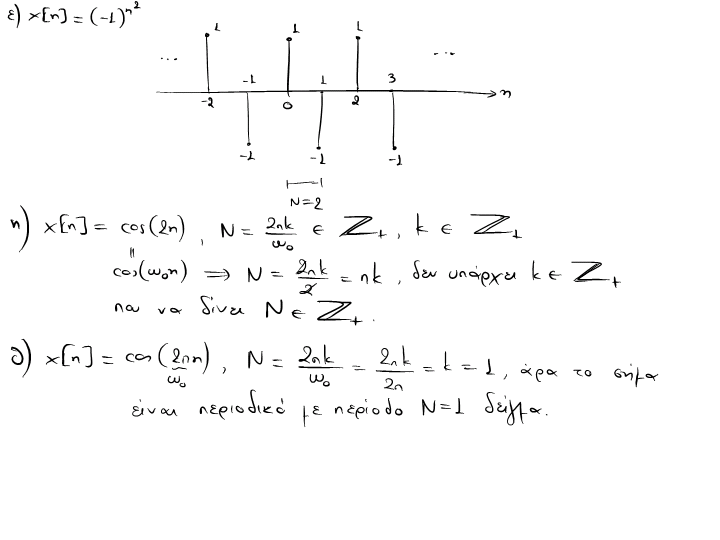 ε) x[n] = (-1)^{n^2}
1 1 1
... ...
-1 1 3
-2 0 2 n
-1 -1 -1
N=2
η) x[n] = cos(2n), N = 2πk/ω₀ ∈ ℤ₊, k ∈ ℤ₊
cos(ω₀n) ⟹ N = 2πk/2 = πk, δεν υπάρχει k ∈ ℤ₊
που να δίνει N ∈ ℤ₊.
θ) x[n] = cos(2πn), N = 2πk/ω₀ = 2πk/2π = k = 1, άρα το σήμα
ω₀
είναι περιοδικό με περίοδο N=1 δείγμα.